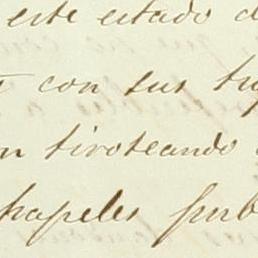 este estado d
con sus tro
n tiroteando
papeles pub